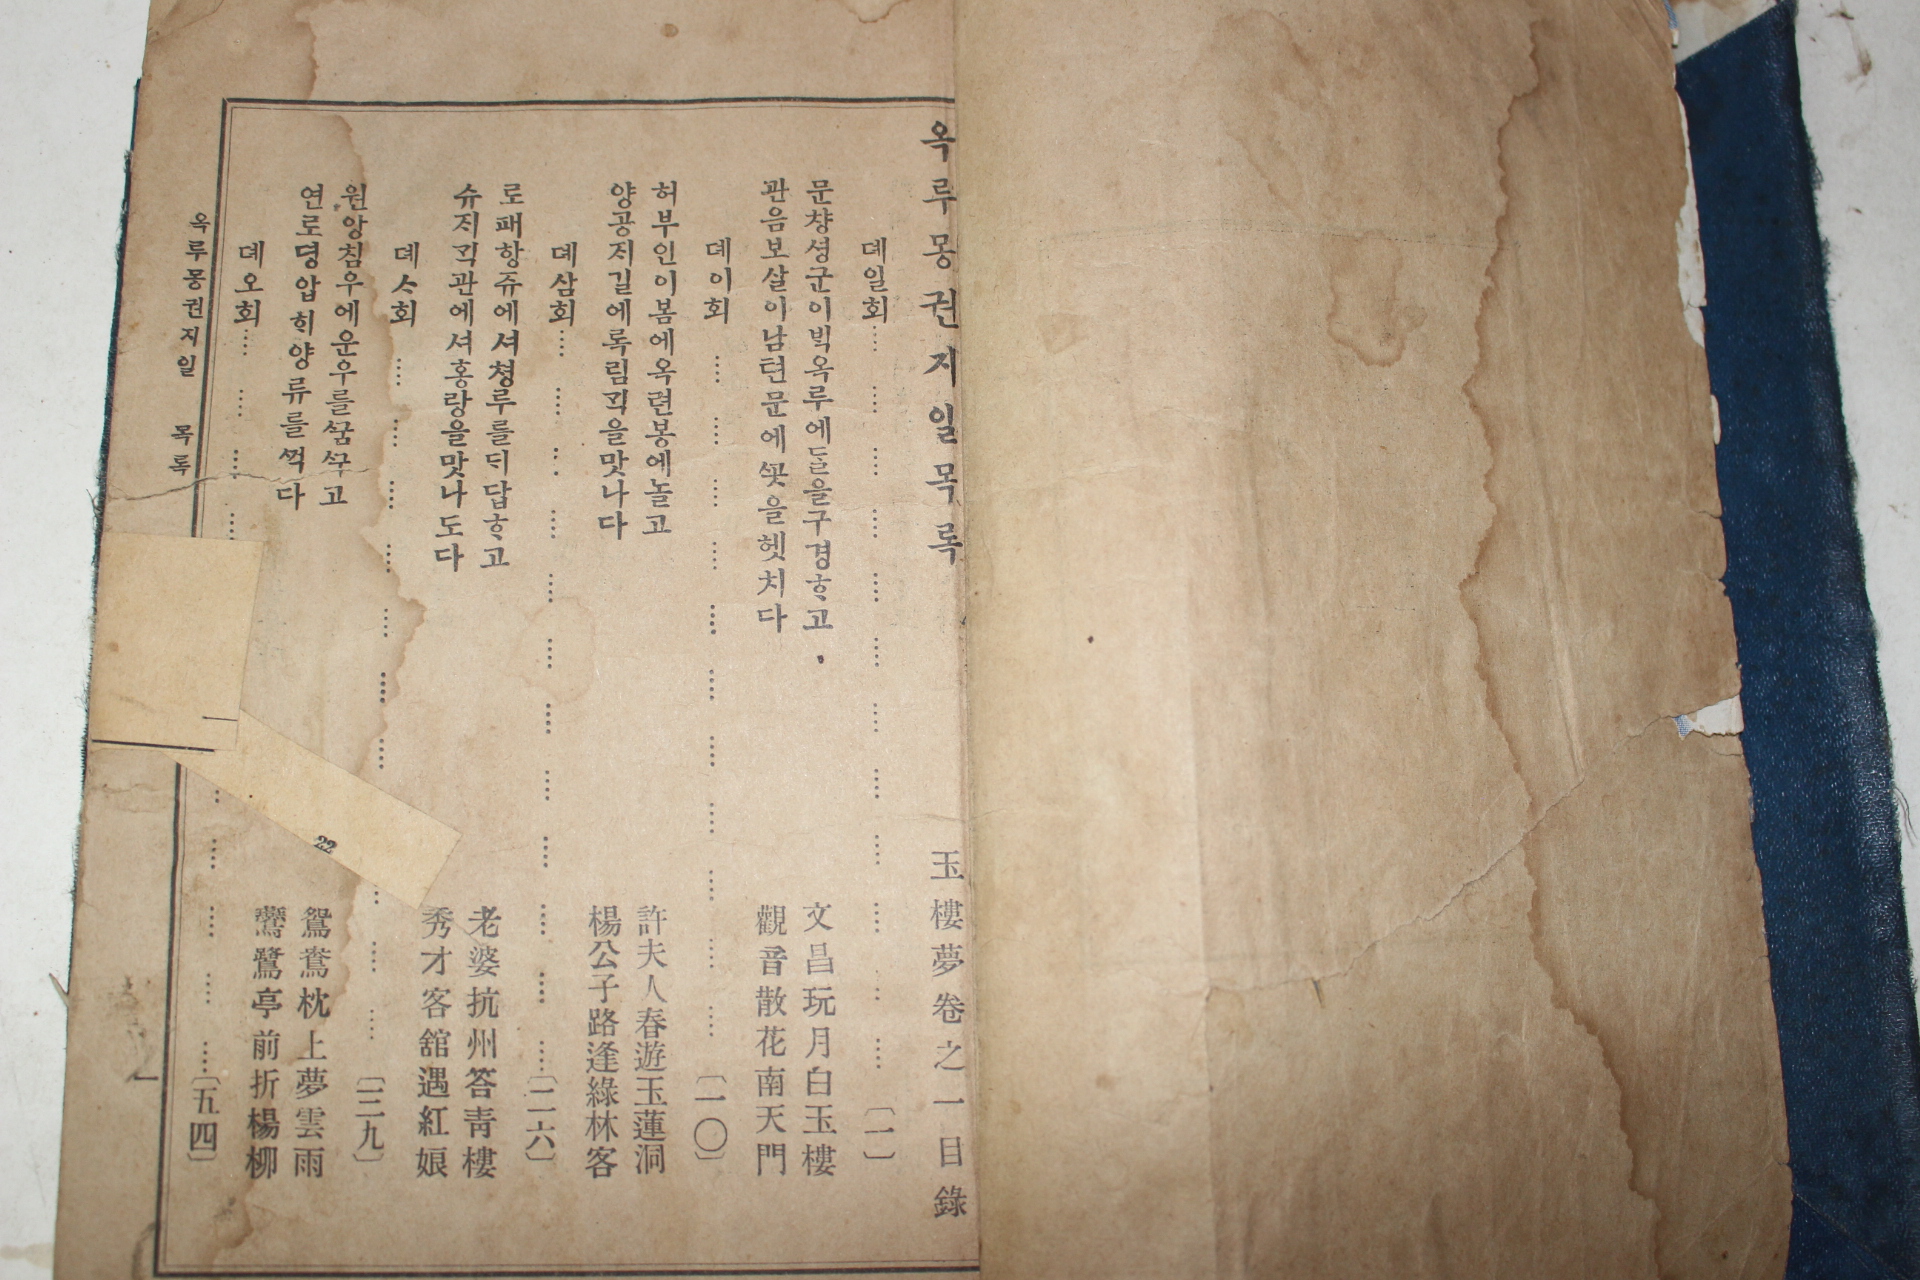 옥루몽권지일목록 玉樓夢卷之一目錄
뎨일회 〔一〕
문챵셩군이ᄇᆡᆨ옥루에ᄃᆞᆯ을구경ᄒᆞ고 文昌玩月白玉樓
관음보살이남텬문에ᄭᅩᆺ을헷치다 觀音散花南天門
뎨이회 〔一〇〕
허부인이봄에옥련봉에놀고 許夫人春遊玉蓮洞
양공ᄌᆞ길에록림ᄀᆡᆨ을맛나다 楊公子路逢綠林客
뎨삼회 〔二六〕
로패항쥬에셔쳥루를ᄃᆡ답ᄒᆞ고 老婆抗州答靑樓
슈ᄌᆡᄀᆡᆨ관에셔홍랑을맛나도다 秀才客舘遇紅娘
뎨ᄉᆞ회 〔三九〕
원앙침우에운우를ᄭᅮᆷᄭᅮ고 鴛鴦枕上夢雲雨
연로뎡압희양류를ᄭᅥᆨ다 鷰鷺亭前折楊柳
뎨오회 〔五四〕
옥루몽권지일 목록
一
22